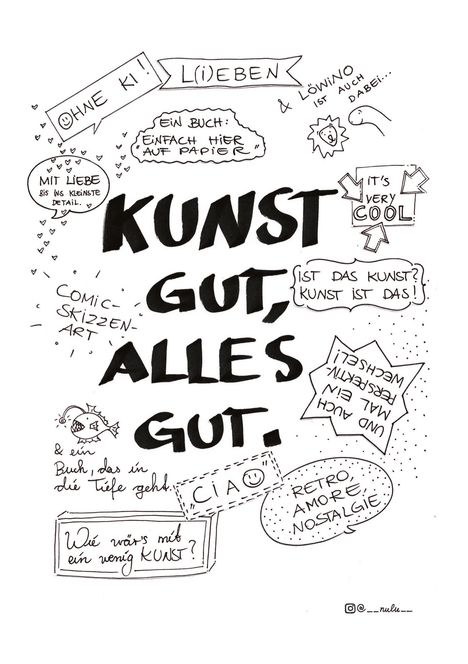 OHNE KI!
L(i)EBEN
& LÖWINO
IST AUCH
DABEI...
EIN BUCH:
EINFACH HIER
"AUF PAPIER"
MIT LIEBE
BIS INS KLEINSTE
DETAIL.
IT'S
VERY
COOL
KUNST
GUT,
ALLES
GUT.
IST DAS KUNST?
KUNST IST DAS!
COMIC-
SKIZZEN-
ART
UND AUCH
MAL EIN
PERSPEKTIV-
WECHSEL!
& ein
Buch, das in
die Tiefe geht.
"CIAO"
RETRO,
AMORE,
NOSTALGIE
Wie wär's mit
ein wenig KUNST?
@__nulu__